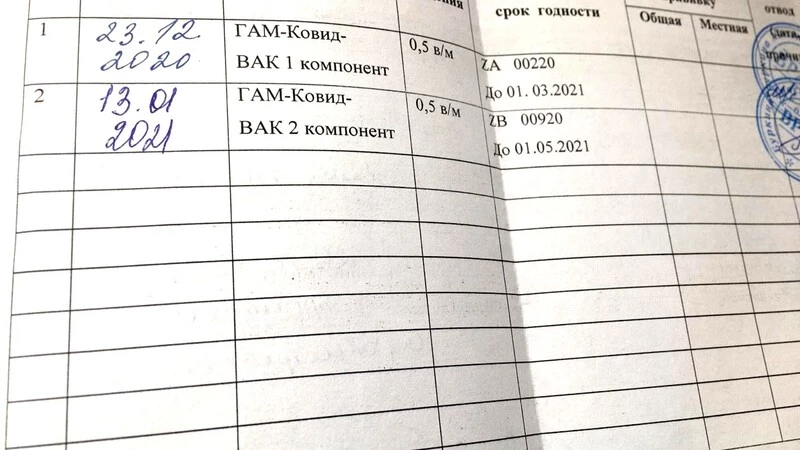 срок годности
Общая
Местная
отвод
1
23.12.
2020
ГАМ-Ковид-
ВАК 1 компонент
0,5 в/м
ZA 00220
До 01. 03.2021
2
13.01
2021
ГАМ-Ковид-
ВАК 2 компонент
0,5 в/м
ZB 00920
До 01.05.2021